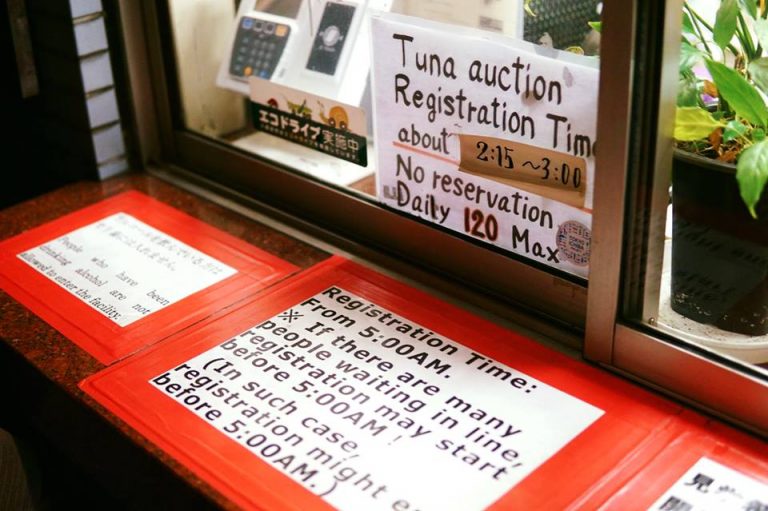 Tuna auction
Registration Time
about 2:15 ~ 3:00
No reservation
Daily 120 Max
エコドライブ実施中
People who have been
drinking alcohol are not
allowed to enter the facility.
Registration Time:
From 5:00AM.
※ If there are many
people waiting in line,
registration may start
before 5:00AM !
(In such case,
registration might e
before 5:00AM.)
見